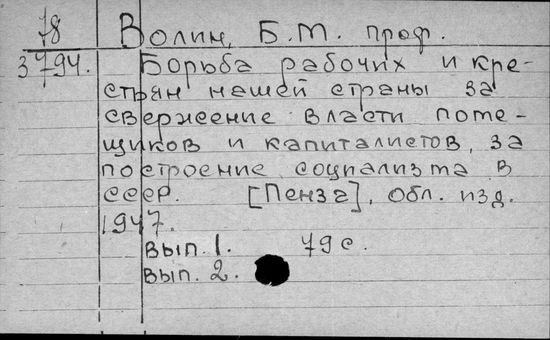 78
3794.
Волин, Б.М. проф.
Борьба рабочих и кре-
стьян нашей страны за
свержение власти поме-
щиков и капиталистов, за
построение социализма в
СССР. [Пенза], Обл. изд.
1947.
Вып. 1. 79 с.
Вып. 2.